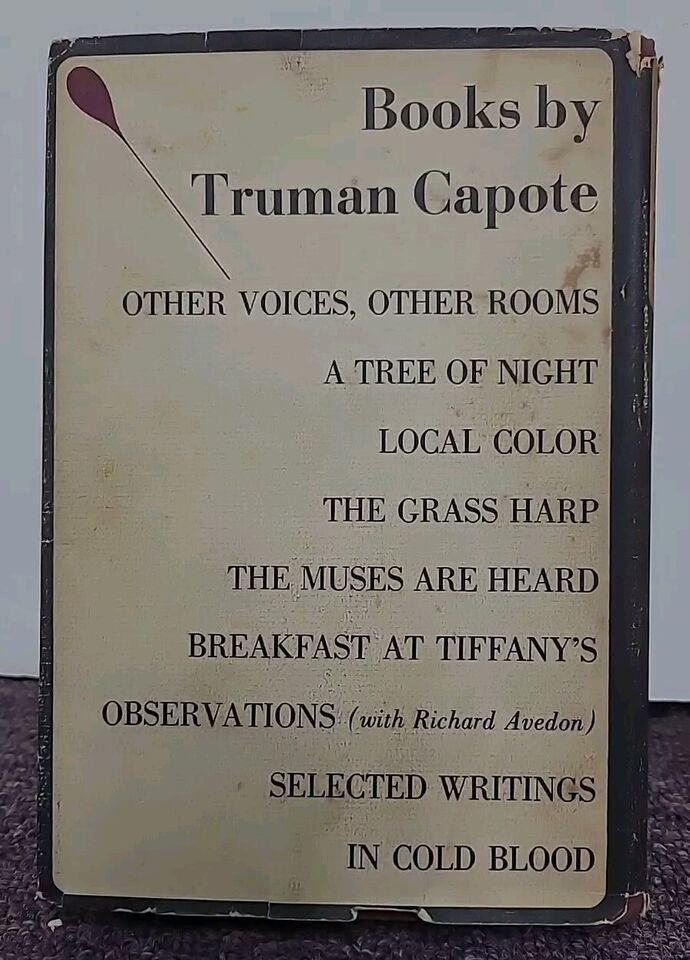 Books by
Truman Capote
OTHER VOICES, OTHER ROOMS
A TREE OF NIGHT
LOCAL COLOR
THE GRASS HARP
THE MUSES ARE HEARD
BREAKFAST AT TIFFANY'S
OBSERVATIONS (with Richard Avedon)
SELECTED WRITINGS
IN COLD BLOOD